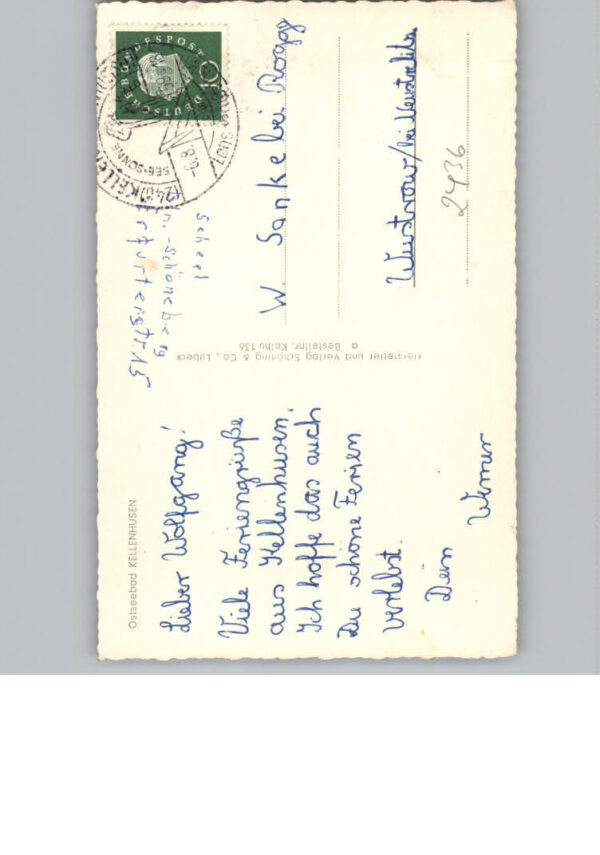 Ostseebad KELLENHUSEN
Lieber Wolfgang!
Viele Feriengrüße
aus Kellenhusen.
Ich hoffe das auch
Du schöne Ferien
verlebst.
Dein
Werner
Hersteller und Verlag Schöning & Co., Lübeck
a Bestellnr. Kelhu 136
Scheel
n.-Schöneberg
rfurterstr. 15
DEUTSCHE BUNDESPOST
10
(24b) KELLEN
SEE·SONNE
W. Sanke bei Rogge
Wustrow/bei Neustrelitz
2436